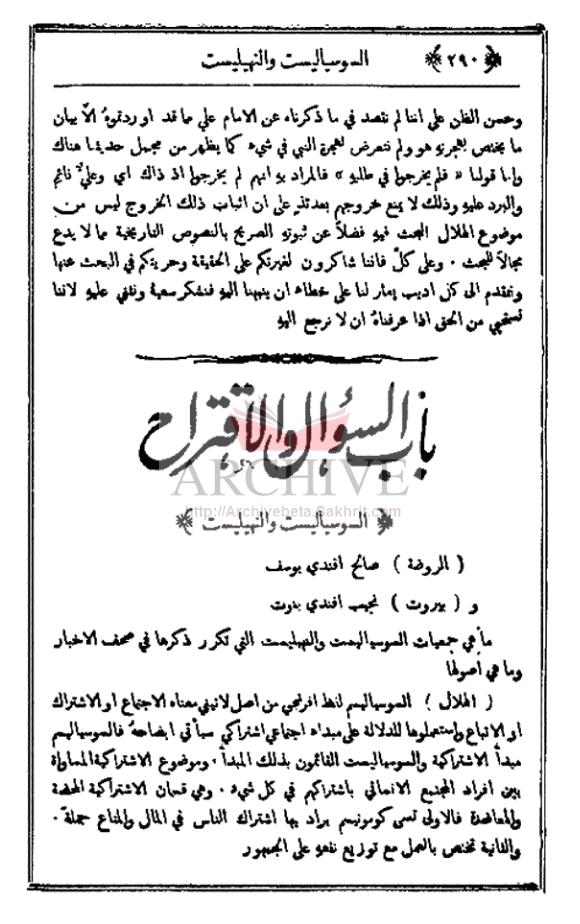 ﴿ ٢٩٠ ﴾ السوسياليست والنهيليست
وحسن الظن على اننا لم نقصد في ما ذكرناه عن الامام علي مما قد اوردتموهُ الَّا بيان
ما يختص بهجرتهِ هو ولم نتعرض لهجرة النبي في شيءٍ كما يظهر من مجمل حديثنا هناك
واما قولنا « فلم يخرجوا في طلبهِ » فالمراد بهِ انهم لم يخرجوا اذ ذاك اي وعليٌّ نائم
والبرد عليهِ وذلك لا يمنع خروجهم بعدئذٍ على ان اثبات ذلك الخروج ليس من
موضوع الهلال البحث فيهِ فضلاً عن ثبوتهِ الصريح بالنصوص التاريخية مما لا يدع
مجالاً للبحث . وعلى كلٍّ فاننا شاكرون لغيرتكم على الحقيقة وحريتكم في البحث عنها
ونتقدم الى كل اديب يعثر لنا على خطاءٍ ان ينبهنا اليهِ فنشكر سعيهُ ونثني عليهِ لاننا
نستحيي من الحق اذا عرفناهُ ان لا نرجع اليهِ
باب السؤال والاقتراح
ARCHIVE
http://Archivebeta.Sakhrit.com
﴿ السوسياليست والنهيليست ﴾
( الروضة ) صالح افندي يوسف
و ( بيروت ) نجيب افندي بنوت
ما هي جمعيات السوسياليست والنهيليست التي تكرر ذكرها في صحف الاخبار
وما هي اصولها
( الهلال ) السوسياليسم لفظ افرنجي من اصل لاتيني معناه الاجتماع او الاشتراك
او الاتباع واستعملوها للدلالة على مبداءٍ اجتماعي اشتراكي سيأتي ايضاحهُ فالسوسياليسم
مبدأ الاشتراكية والسوسياليست القائمون بذلك المبدأ . وموضوع الاشتراكية المساواة
بين افراد المجتمع الانساني باشتراكهم في كل شيءٍ . وهي قسمان الاشتراكية المحضة
والمعاضدة فالاولى تسمى كومونيسم يراد بها اشتراك الناس في المال والمتاع جملةً .
والثانية تختص بالعمل مع توزيع نفعهِ على الجمهور